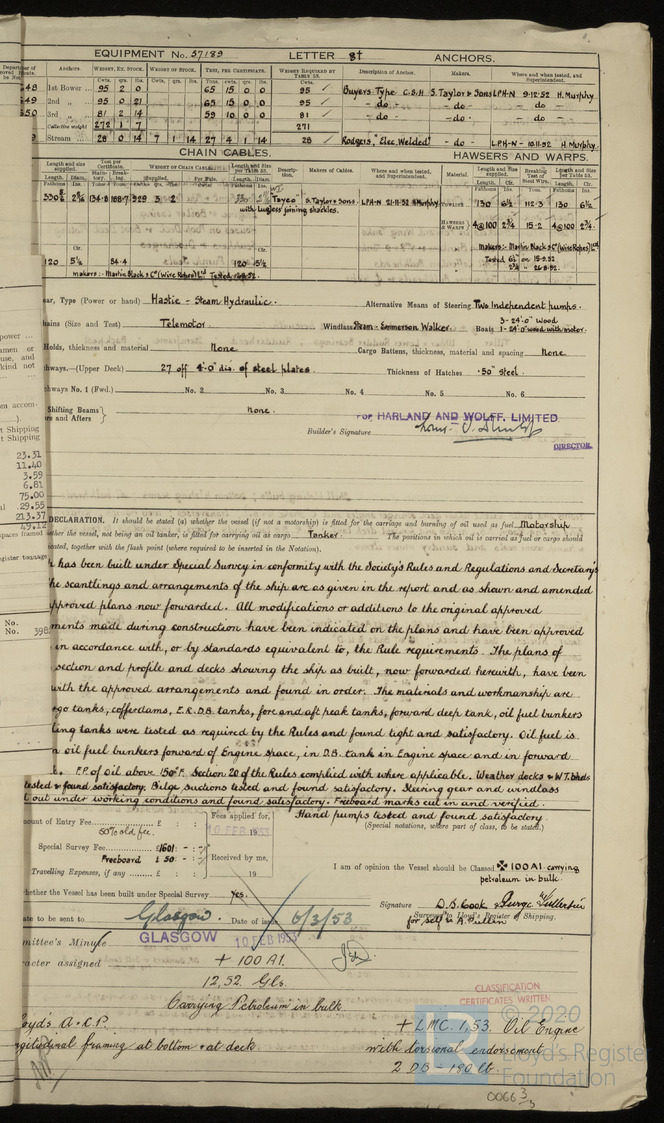 EQUIPMENT No. 57189 LETTER 8† ANCHORS.
Anchors WEIGHT, EX. STOCK. WEIGHT OF STOCK. TEST, PER CERTIFICATE. WEIGHT REQUIRED BY TABLE 53. Description of Anchor. Makers. Where and when tested, and Superintendent.
1st Bower 95 2 0 65 15 0 0 95 ✓ Buyers Type C.S.H S. Taylor & Sons LPH-N 9-12-52 H. Murphy
2nd " 95 0 21 65 15 0 0 95 ✓ - do - - do - - do -
3rd " 81 2 14 59 10 0 0 81 ✓ - do - - do - - do -
Collective weight 272 1 7 271
Stream 28 0 14 7 1 14 27 4 1 14 28 ✓ Rodgers, "Elec. Welded" - do - LPH-N - 10.11.52 H. Murphy
CHAIN CABLES. HAWSERS AND WARPS.
"Tayco" S. Taylor & Sons. LPH-N 21-11-52 H. Murphy
with lugless joining shackles.
TOWLINES 130 6½ 112.3 130 6½
HAWSERS & WARPS 4@100 2¾ 15.2 4@100 2¾
makers:- Martin Black & Co (Wire Ropes) Ltd
Tested 6½" on 15.9.52
120 5¼ 84.4 120 5½
makers:- Martin Black & Co (Wire Ropes) Ltd
ear, Type (Power or hand) Hastie - Steam Hydraulic. Alternative Means of Steering Two Independent pumps.
hains (Size and Test) Telemotor. Windlass Steam - Emmerson Walker. Boats 3-24'-0" wood 1-24'-0" wood with motor.
Holds, thickness and material None Cargo Battens, thickness, material and spacing None
hways.—(Upper Deck) 27 off 4'-0" dia. of steel plates Thickness of Hatches .50" steel.
hways No. 1 (Fwd.) No. 2 No. 3 No. 4 No. 5 No. 6
Shifting Beams None.
rs and Afters
FOR HARLAND AND WOLFF, LIMITED
Builder's Signature
DIRECTOR
23.31
11.40
3.59
6.81
75.00
29.55
213.37
DECLARATION. It should be stated (a) whether the vessel (if not a motorship) is fitted for the carriage and burning of oil used as fuel Motorship
ether the vessel, not being an oil tanker, is fitted for carrying oil as cargo Tanker. The positions in which oil is carried as fuel or cargo should
cated, together with the flash point (where required to be inserted in the Notation).
has been built under Special Survey in conformity with the Society's Rules and Regulations and Secretary's
he scantlings and arrangements of the ship are as given in the report and as shown and amended
pproved plans now forwarded. All modifications or additions to the original approved
ments made during construction have been indicated on the plans and have been approved
in accordance with, or by standards equivalent to, the Rule requirements. The plans of
section and profile and decks showing the ship as built, now forwarded herewith, have been
with the approved arrangements and found in order. The materials and workmanship are
go tanks, cofferdams, E.R.D.B. tanks, fore and aft peak tanks, forward deep tank, oil fuel bunkers
ling tanks were tested as required by the Rules and found tight and satisfactory. Oil fuel is
n oil fuel bunkers forward of Engine space, in D.B. tank in Engine space and in forward
F.P. of oil above 150°F. Section 20 of the Rules complied with where applicable. Weather decks & W.T. bhds
tested & found satisfactory. Bilge suctions tested and found satisfactory. Steering gear and windlass
out under working conditions and found satisfactory. Freeboard marks cut in and verified.
Hand pumps tested and found satisfactory.
(Special notations, where part of class, to be stated.)
ount of Entry Fee £ : : Fees applied for,
50% old fee. 10 FEB 1953
Special Survey Fee £1601 : - : -
Freeboard £50 : - : - Received by me,
Travelling Expenses, if any £ : : 19
I am of opinion the Vessel should be Classed ✠ 100A1. carrying
petroleum in bulk.
hether the Vessel has been built under Special Survey Yes.
Signature D.B. Cook
Surveyors to Lloyd's Register of Shipping.
for self & A. Pullin
ate to be sent to Glasgow Date of issue 6/3/53
mmittee's Minute GLASGOW 10 FEB 1953
racter assigned + 100 A1.
12,52. Gls.
Carrying Petroleum in bulk
CLASSIFICATION
CERTIFICATES WRITTEN
oyd's A & C.P. + LMC. 1,53. Oil Engine
ngitudinal framing at bottom & at deck with torsional endorsement
2 DB - 180 lb.
© 2020
Lloyd's Register
Foundation
LR
0066 3/3